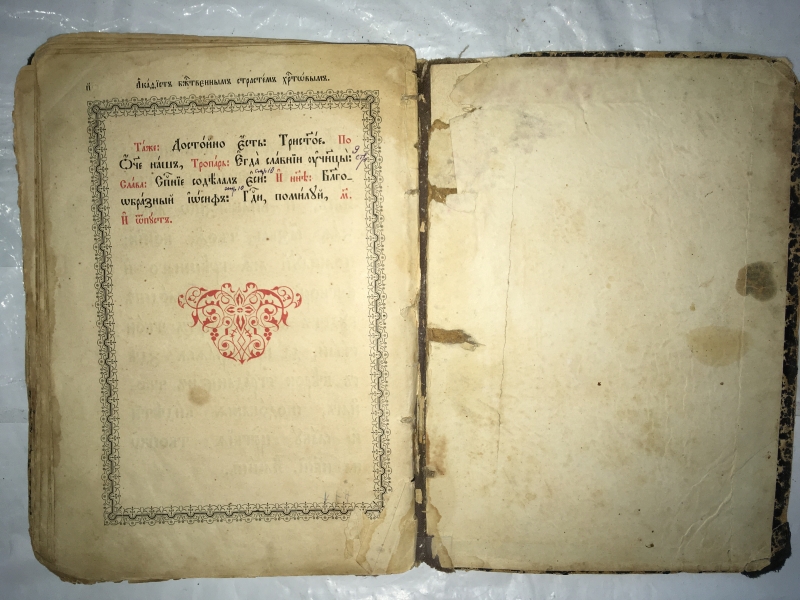 и҃ Акаѳїстъ бж҃твеннымъ страстємъ хр҃тѡвымъ.
Таже: Достойно є҆сть: Трист҃ое. По
Ѻ҆́ч҃е нашъ, Тропарь: Егда̀ сла́внїи ᲂу҆чн҃цы̀: 9
Слава: Сп҃нїе содѣлалъ є҆сѝ: И҆ нн҃ѣ: Бл҃го-
стр. 10
ѡбра́зный і҆ѡ́сифъ: Гд҃и, поми́луй, м҃.
стр. 10
И҆ ѿпꙋстъ.